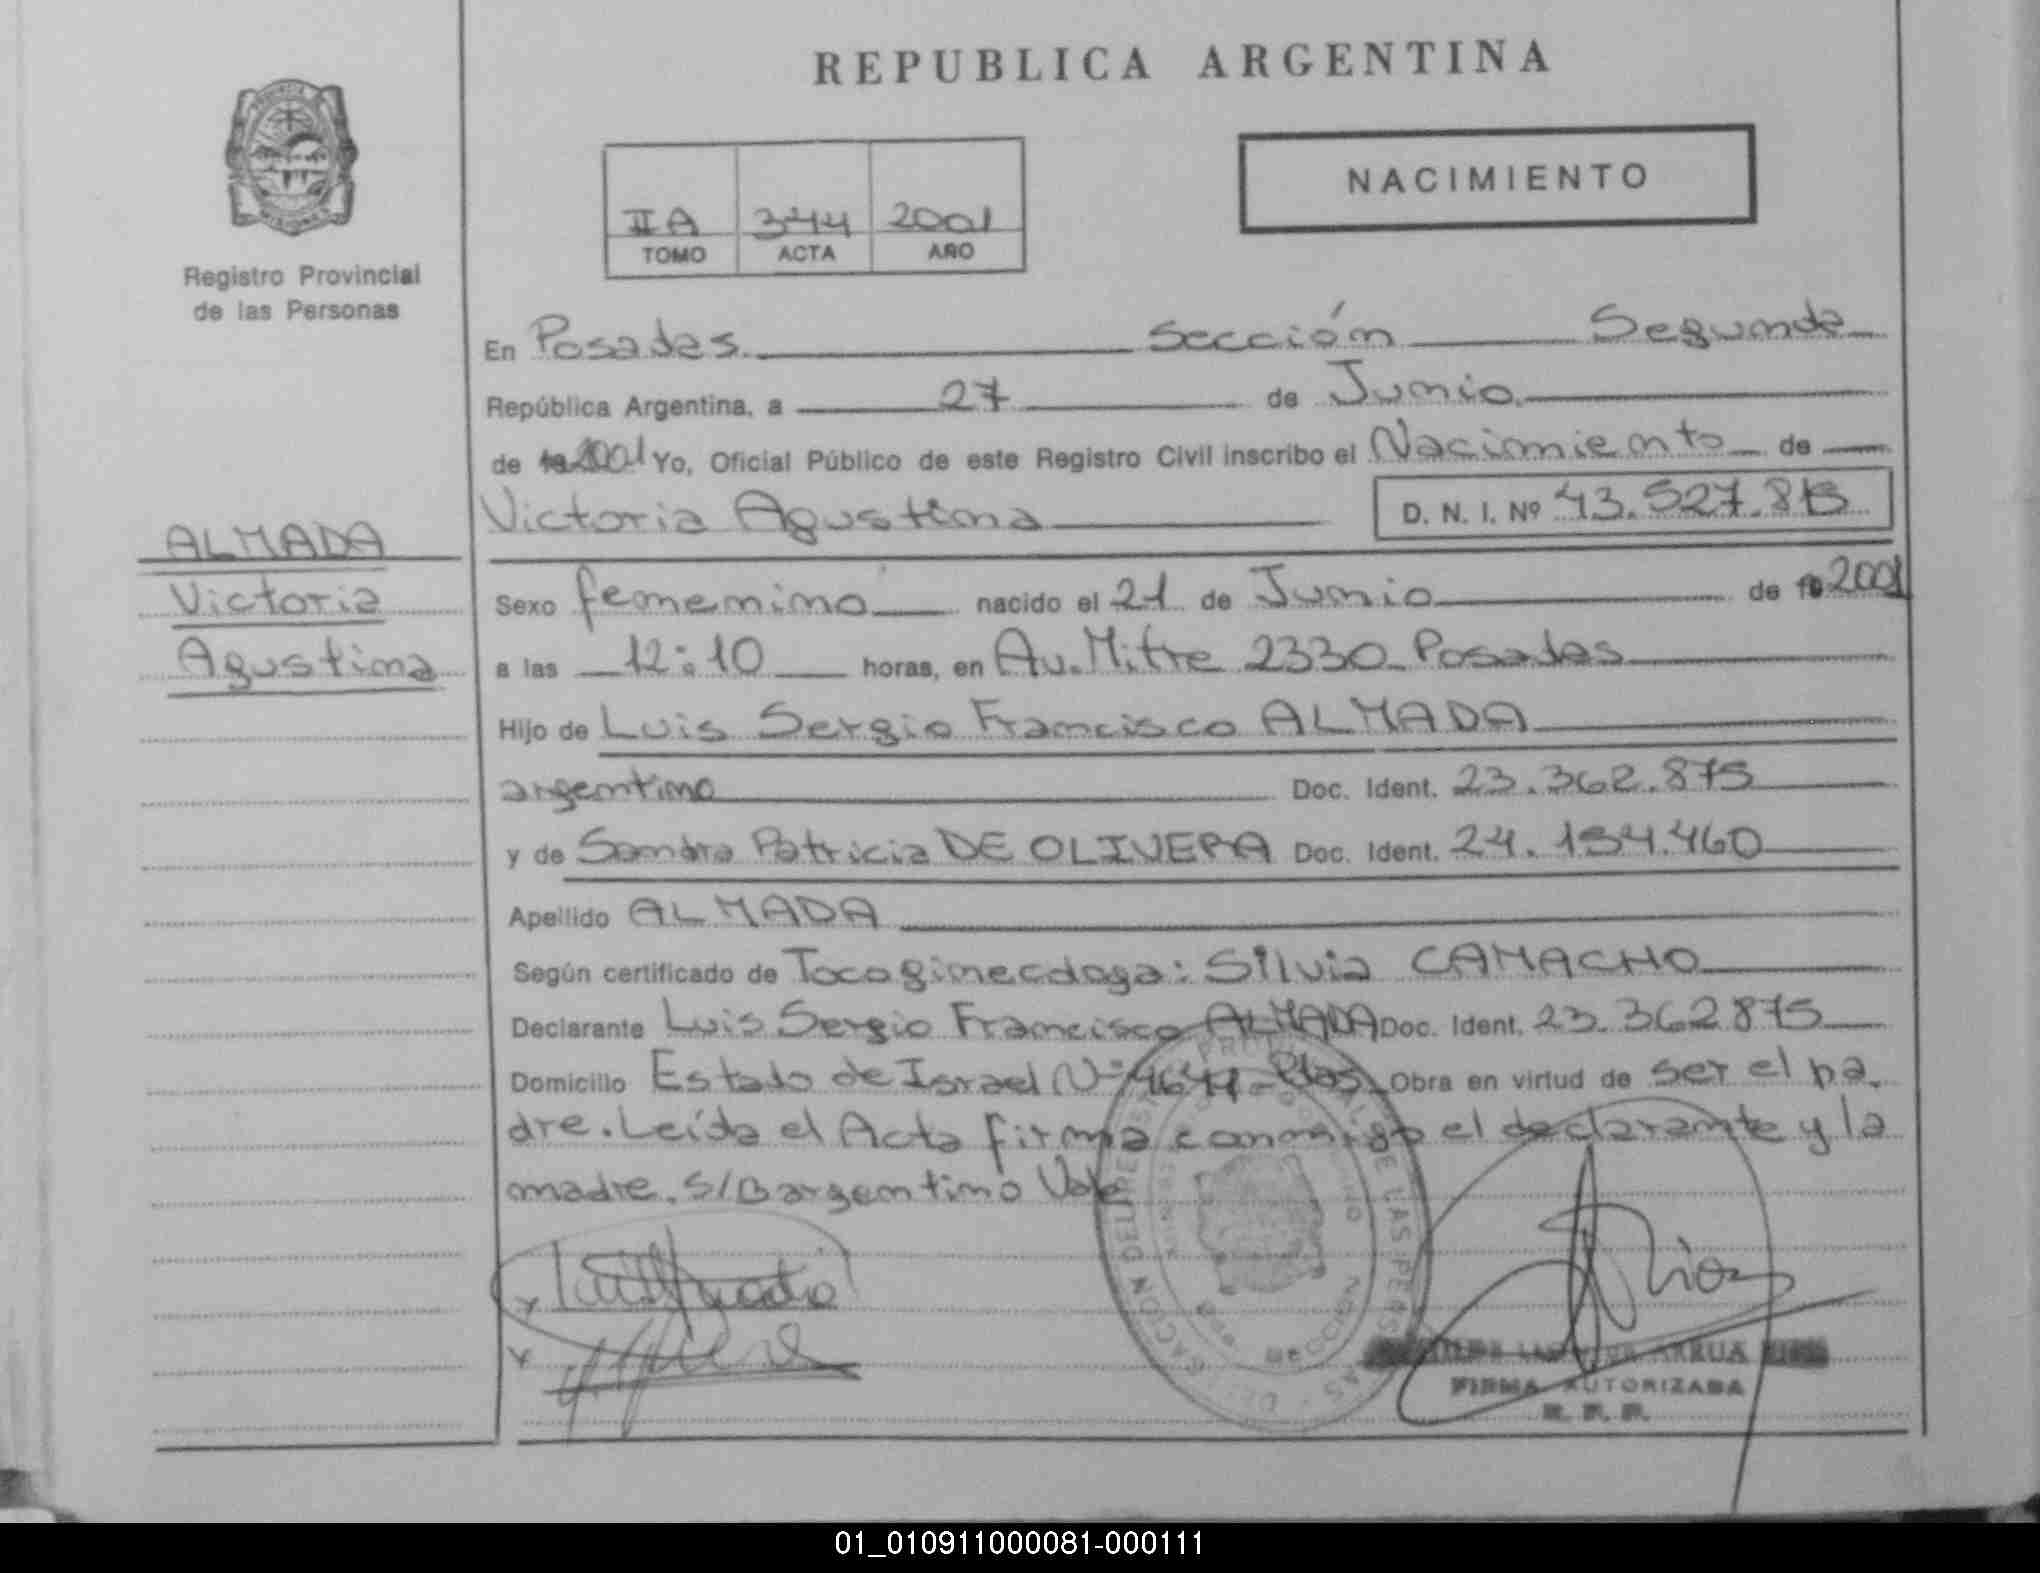 REPUBLICA ARGENTINA
NACIMIENTO
IIA 344 2001
TOMO ACTA AÑO
Registro Provincial
de las Personas
En Posadas Sección Segunda
República Argentina, a 27 de Junio
de 2001 Yo, Oficial Público de este Registro Civil inscribo el Nacimiento de
Victoria Agustina D. N. I. Nº 43.527.813
ALMADA
Victoria
Agustina
Sexo femenino nacido el 21 de Junio de 2001
a las 12:10 horas, en Av. Mitre 2330 Posadas
Hijo de Luis Sergio Francisco ALMADA
argentino Doc. Ident. 23.362.875
y de Sandra Patricia DE OLIVERA Doc. Ident. 24.134.460
Apellido ALMADA
Según certificado de Tocoginecologa: Silvia CAMACHO
Declarante Luis Sergio Francisco ALMADA Doc. Ident. 23.362875
Domicilio Estado de Israel Nº Pdas. Obra en virtud de ser el pa.
dre. Leída el Acta firma conmigo el declarante y la
madre. S/B argentino Vale
ARRUA
FIRMA AUTORIZADA
R. P. P.
01_010911000081-000111